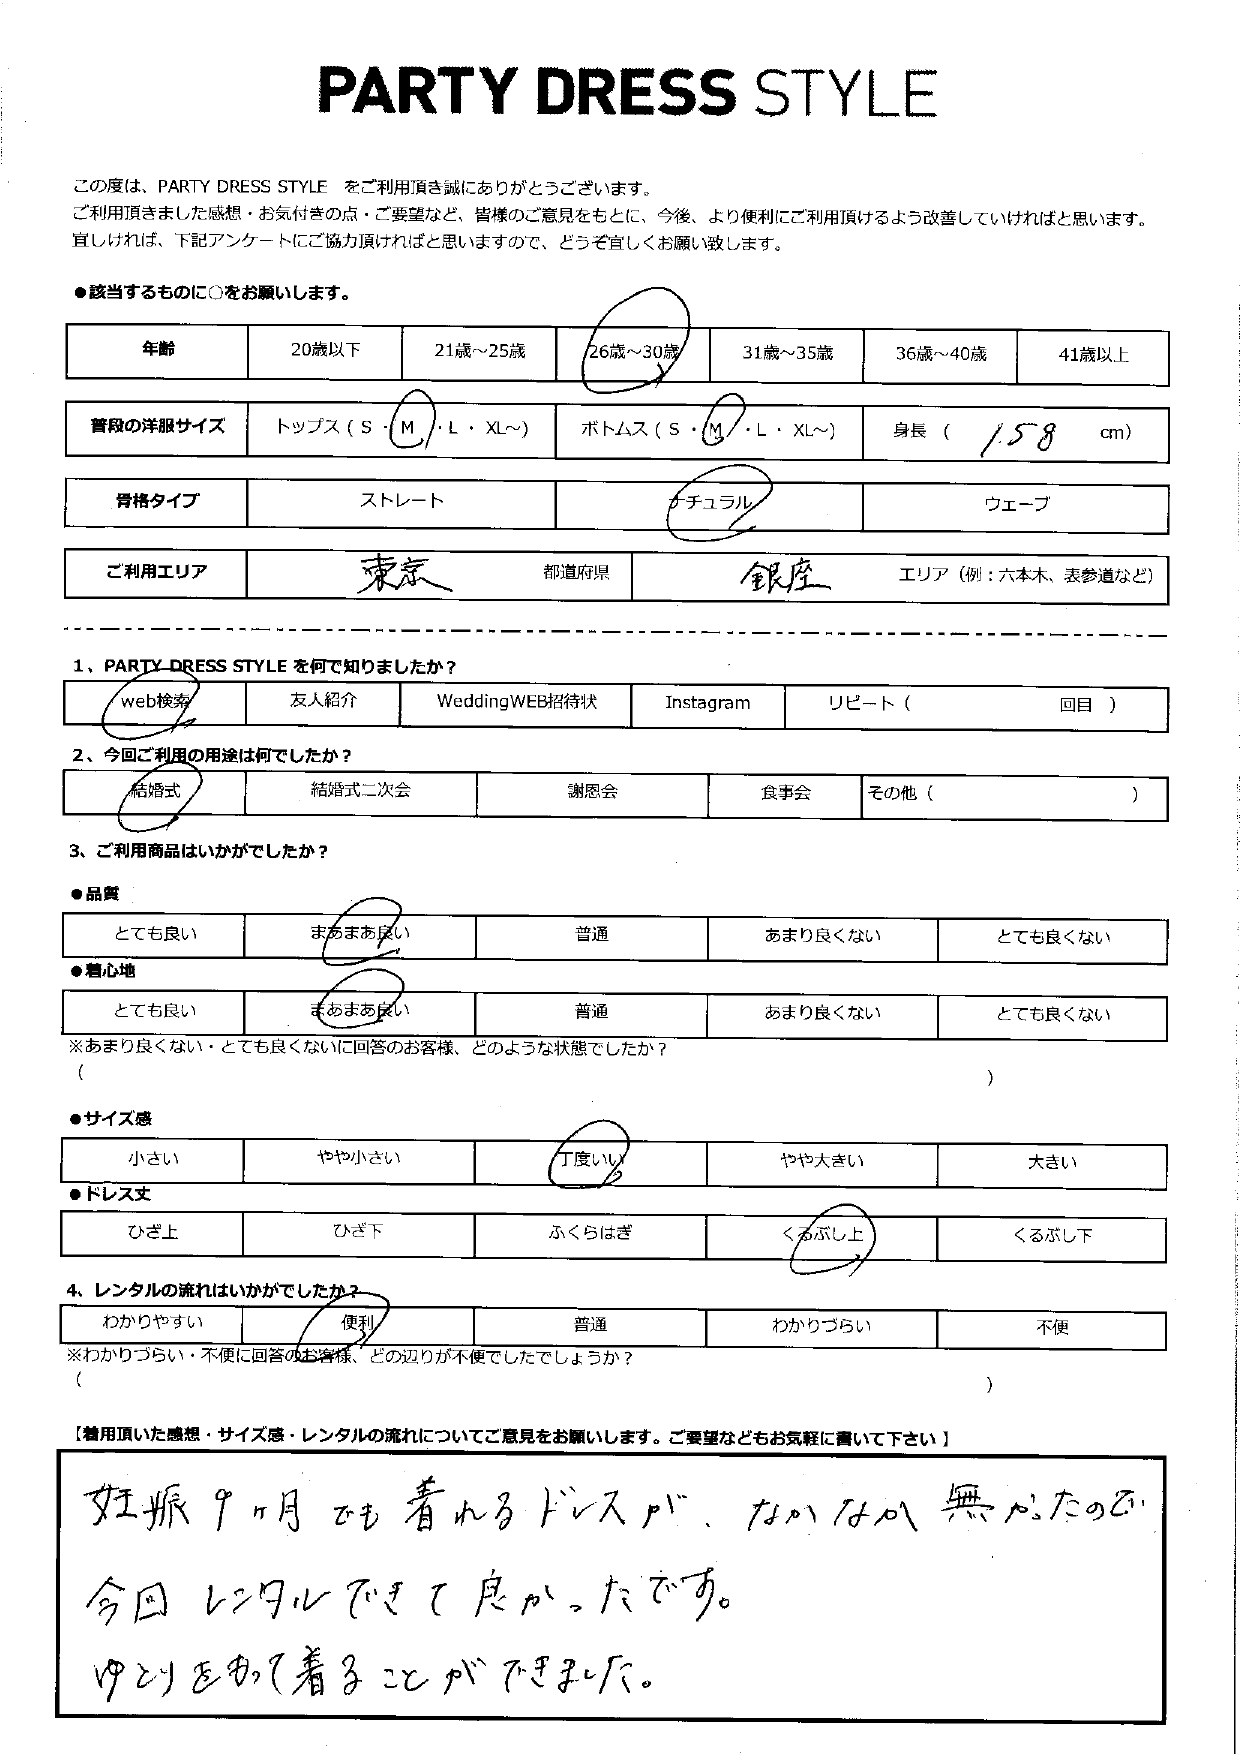 PARTY DRESS STYLE
この度は、PARTY DRESS STYLE をご利用頂き誠にありがとうございます。
ご利用頂きました感想・お気付きの点・ご要望など、皆様のご意見をもとに、今後、より便利にご利用頂けるよう改善していければと思います。
宜しければ、下記アンケートにご協力頂ければと思いますので、どうぞ宜しくお願い致します。
●該当するものに○をお願いします。
年齢 20歳以下 21歳～25歳 26歳～30歳 31歳～35歳 36歳～40歳 41歳以上
普段の洋服サイズ トップス ( S ・ M ・ L ・ XL～) ボトムス ( S ・ M ・ L ・ XL～) 身長 ( 158 cm)
骨格タイプ ストレート ナチュラル ウェーブ
ご利用エリア 東京 都道府県 銀座 エリア（例：六本木、表参道など）
1、PARTY DRESS STYLE を何で知りましたか？
web検索 友人紹介 WeddingWEB招待状 Instagram リピート ( 回目 )
2、今回ご利用の用途は何でしたか？
結婚式 結婚式二次会 謝恩会 食事会 その他 ( )
3、ご利用商品はいかがでしたか？
●品質
とても良い まあまあ良い 普通 あまり良くない とても良くない
●着心地
とても良い まあまあ良い 普通 あまり良くない とても良くない
※あまり良くない・とても良くないに回答のお客様、どのような状態でしたか？
( )
●サイズ感
小さい やや小さい 丁度いい やや大きい 大きい
●ドレス丈
ひざ上 ひざ下 ふくらはぎ くるぶし上 くるぶし下
4、レンタルの流れはいかがでしたか？
わかりやすい 便利 普通 わかりづらい 不便
※わかりづらい・不便に回答のお客様、どの辺りが不便でしたでしょうか？
( )
【着用頂いた感想・サイズ感・レンタルの流れについてご意見をお願いします。ご要望などもお気軽に書いて下さい】
妊娠9ヶ月でも着れるドレスが、なかなか無かったので
今回レンタルできて良かったです。
ゆとりをもって着ることができました。